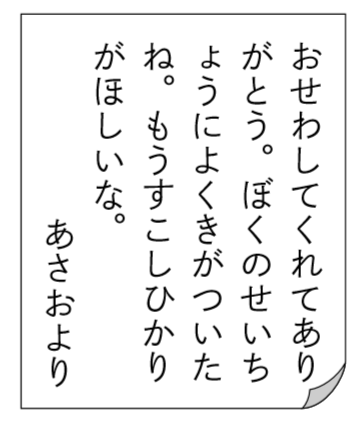 おせわしてくれてあり
がとう。ぼくのせいち
ょうによくきがついた
ね。もうすこしひかり
がほしいな。
あさおより